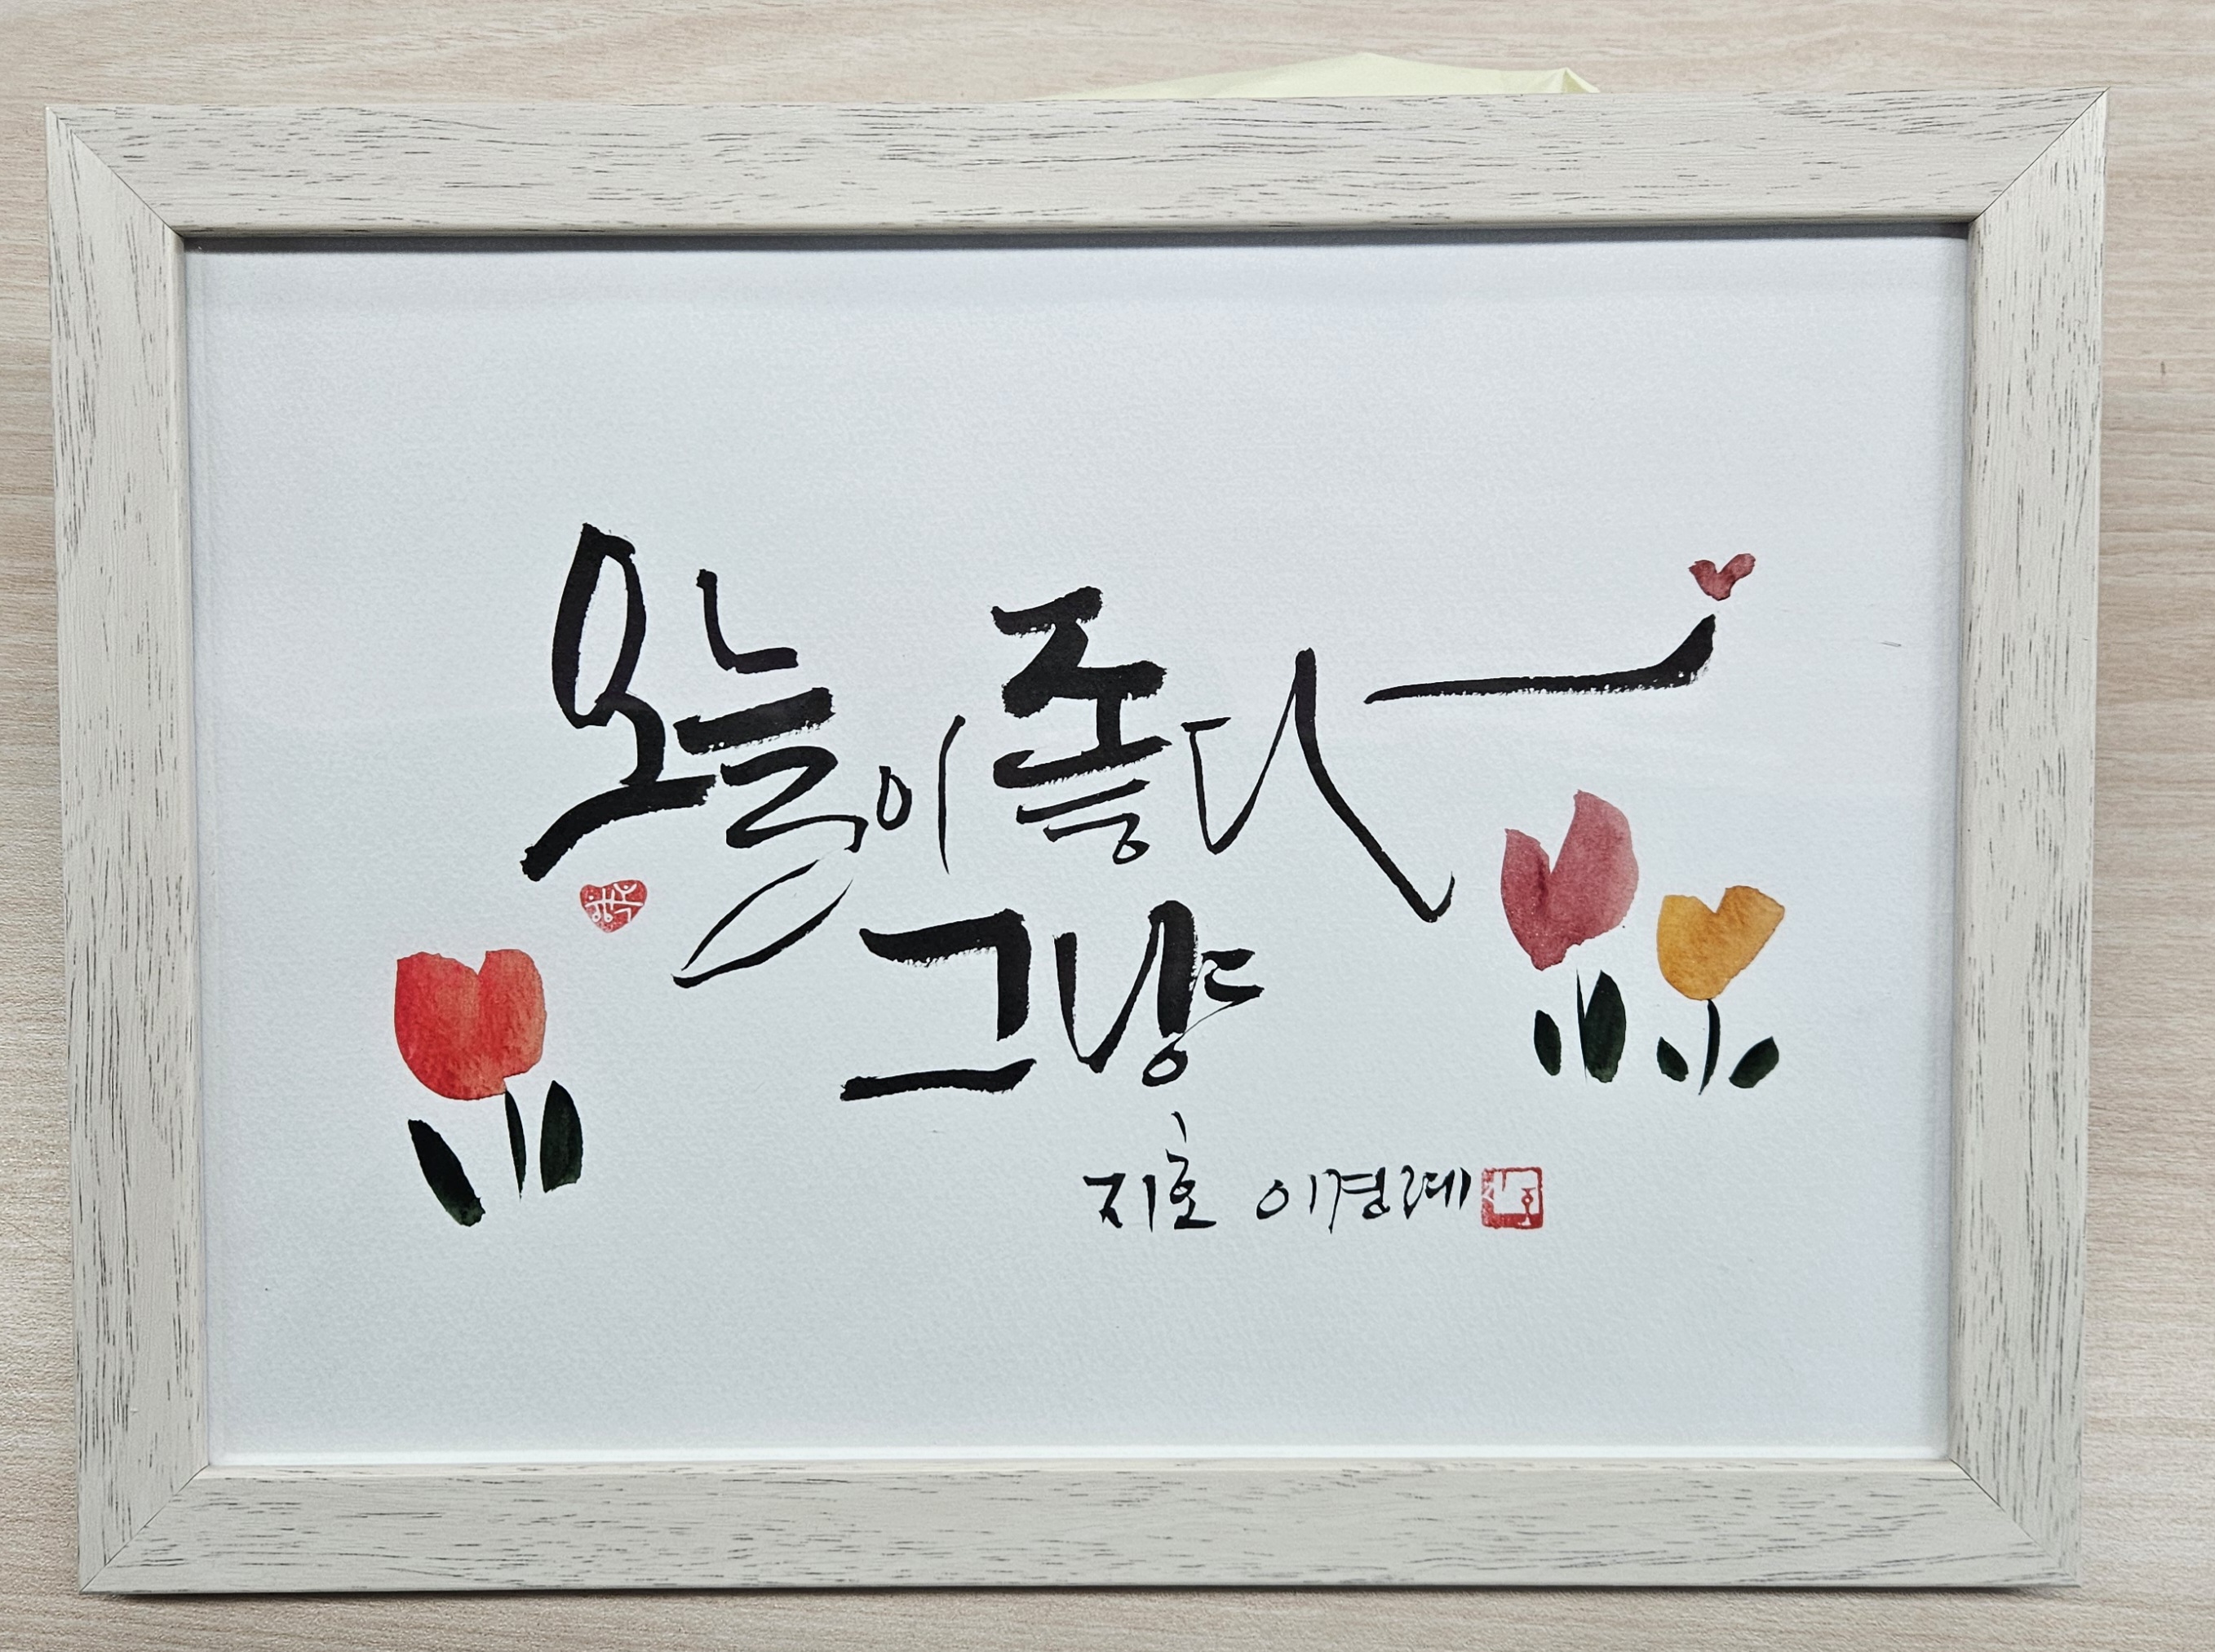 오늘이 좋다
그냥
지호 이경례